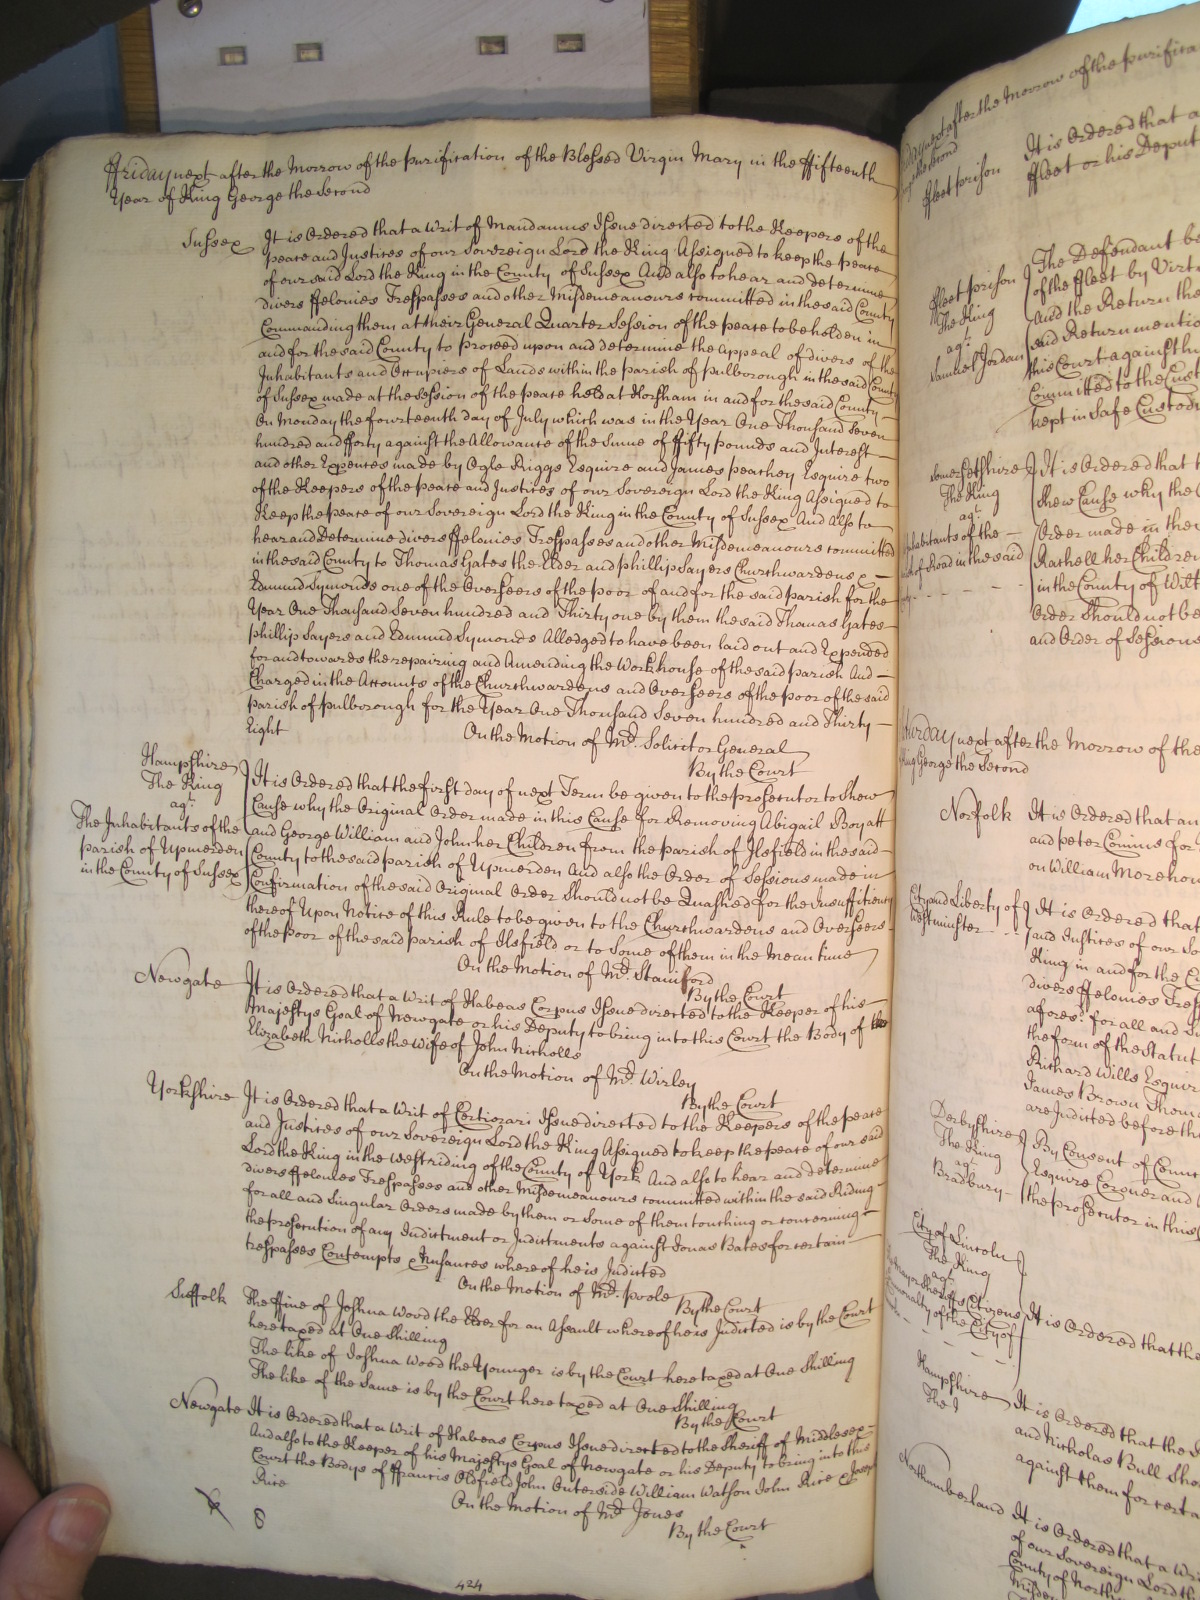 ffriday next after the Morrow of the purification of the Blessed Virgin Mary in the ffifteenth
Year of King George the Second
Sussex It is Ordered that a Writ of Mandamus Issue directed to the Keepers of the
peace and Justices of our Sovereign Lord the King Assigned to keep the peace
of our said Lord the King in the County of Sussex And also to hear and determine
divers ffelonies Trespasses and other Misdemeanours committed in the said County
Commanding them at their General Quarter Session of the peace to be holden in
and for the said County to proceed upon and determine the Appeal of divers of the
Inhabitants and Occupiers of Lands within the parish of pulborough in the said County
of Sussex made at the Session of the peace held at Horsham in and for the said County
On Monday the fourteenth day of July which was in the Year One Thousand Seven
hundred and fforty against the Allowance of the Sume of ffifty pounds and Interest
and other Expences made by Ogle Riggs Esquire and James peachey Esquire two
of the Keepers of the peace and Justices of our Sovereign Lord the King Assigned to
Keep the peace of our Sovereign Lord the King in the County of Sussex And Also to
hear and Determine divers ffelonies Trespasses and other Misdemeanours committed
in the said County to Thomas Gates the Elder and phillip Sayers Churchwardens &
Edmund Symonds one of the Overseers of the poor of and for the said parish for the
Year One Thousand Seven hundred and Thirty one by them the said Thomas Gates
phillip Sayers and Edmund Symonds Alledged to have been laid out and Expended
for and towards the repairing and Amending the Workhouse of the said parish And
Charged in the Accounts of the Churchwardens and Overseers of the poor of the said
parish of pulborough for the Year One Thousand Seven hundred and Thirty
Eight On the Motion of Mr. Solicitor General
By the Court
Hampshire
The King
agt.
The Inhabitants of the
parish of Upmerden
in the County of Sussex
It is Ordered that the first day of next Term be given to the prosecutor to Shew
Cause why the Original Order made in this Cause for Removing Abigail Boyatt
and George William and John her Children from the parish of Ilsfield in the said
County to the said parish of Upmerden And also the Order of Sessions made in
Confirmation of the said Original Order Should not be Quashed for the Insufficiency
thereof Upon Notice of this Rule to be given to the Churchwardens and Overseers
of the poor of the said parish of Ilsfield or to Some of them in the Mean time
On the Motion of Mr. Staniford
By the Court
Newgate It is Ordered that a Writ of Habeas Corpus Issue directed to the Keeper of his
Majestys Goal of Newgate or his Deputy to bring into this Court the Body of
Elizabeth Nicholls the Wife of John Nicholls
On the Motion of Mr. Wirley
By the Court
Yorkshire It is Ordered that a Writ of Certiorari Issue directed to the Keepers of the peace
and Justices of our Sovereign Lord the King Assigned to keep the peace of our said
Lord the King in the West riding of the County of York And also to hear and determine
divers ffelonies Trespasses and other Misdemeanours committed within the said Riding
for all and Singular Orders made by them or Some of them touching or concerning
the prosecution of any Indictment or Indictments against Jonas Bates for certain
trespasses Contempts & Nusances whereof he is Indicted
On the Motion of Mr. poole
By the Court
Suffolk The ffine of Joshua Wood the Elder for an Assault whereof he is Indicted is by the Court
here taxed at One Shilling
The like of Joshua Wood the Younger is by the Court here taxed at One Shilling
The like of the Same is by the Court here taxed at One Shilling
By the Court
Newgate It is Ordered that a Writ of Habeas Corpus Issue directed to the Sheriff of Middlesex
And also to the Keeper of his Majestys Goal of Newgate or his Deputy to bring into this
Court the Bodys of ffrancis Oldfield John Outerside William Watson John Rice & Joseph
Rice
On the Motion of Mr. Jones
By the Court
8
424
next after the Morrow of the purifica
ffleet prison It is Ordered that a
ffleet or his Deput
ffleet prison
The King
agt.
Samuel Jordan
The Defendant be
of the ffleet by Virt
And the Return the
and Return mentio
this Court against h
Committed to the Cust
kept in Safe Custod
Somersetshire
The King
agt.
Inhabitants of the
of Road in the said
It is Ordered that t
Shew Cause why the
Order made in the
Rachell her Children
in the County of Wilt
Order Should not be
and Order of Sessions
next after the Morrow of the
King George the Second
Norfolk It is Ordered that an
and peter Comins for
on William Morehou
City and Liberty of
Westminster
It is Ordered that
and Justices of our So
King in and for the C
divers ffelonies Tresp
afores. for all and Si
the form of the Statut
Richard Wills Esquir
James Brown Thom
are Indicted before th
Derbyshire
The King
agt.
Bradbury
By Consent of Couns
Esquire Coroner and
the prosecutor in this
City of Lincoln
The King
agt.
Mayor Sheriffs Citizens
Comonalty of the City of
It is Ordered that the
Hampshire
The
It is Ordered that the
and Nicholas Bull Sho
against them for certa
Northumberland It is Ordered that a Wri
of our Sovereign Lord th
County of North
Misdem